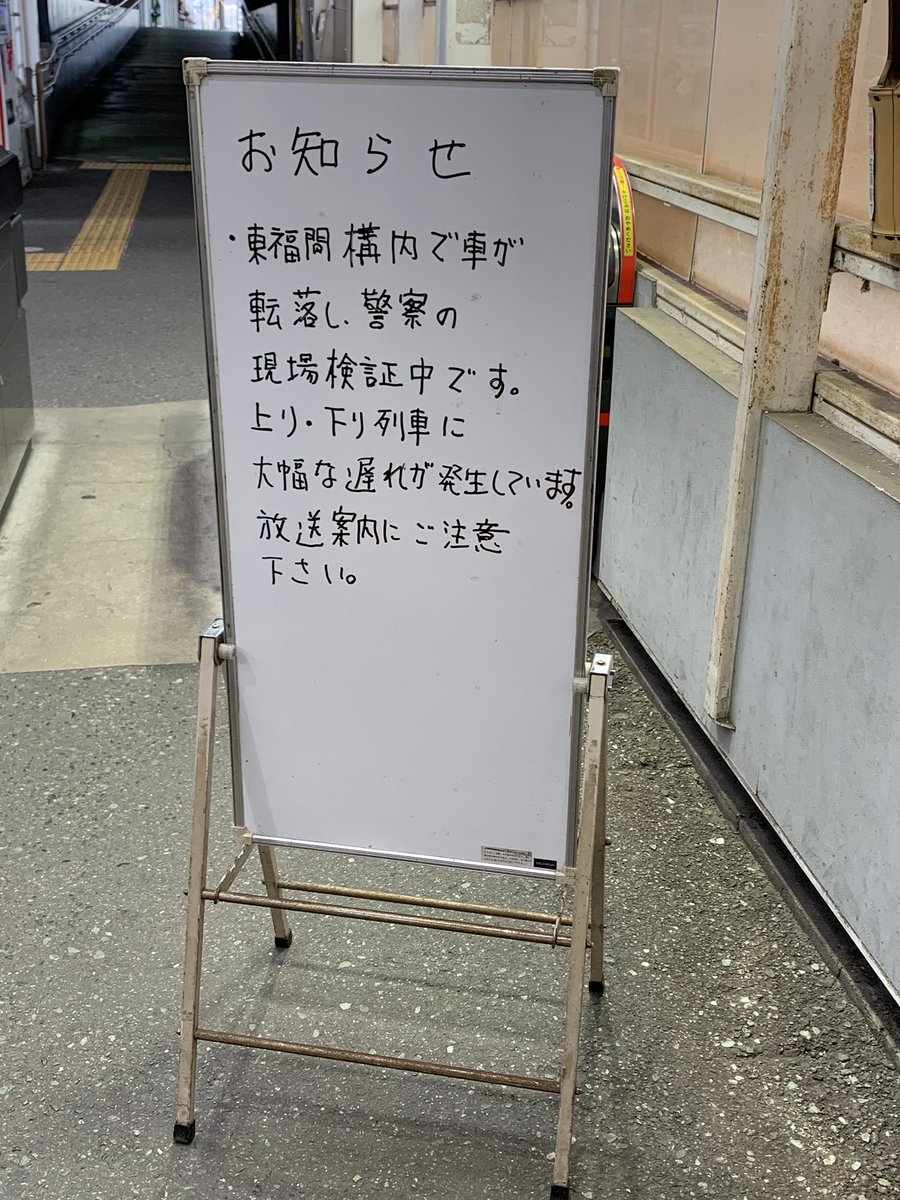 お知らせ
・東福間構内で車が
転落し、警察の
現場検証中です。
上り・下り列車に
大幅な遅れが発生しています。
放送案内にご注意
下さい。